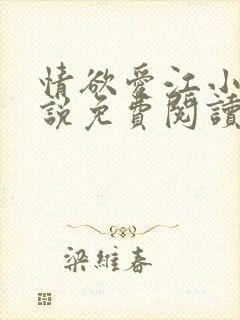 情欲愛江小
說免費閱讀
梁維春